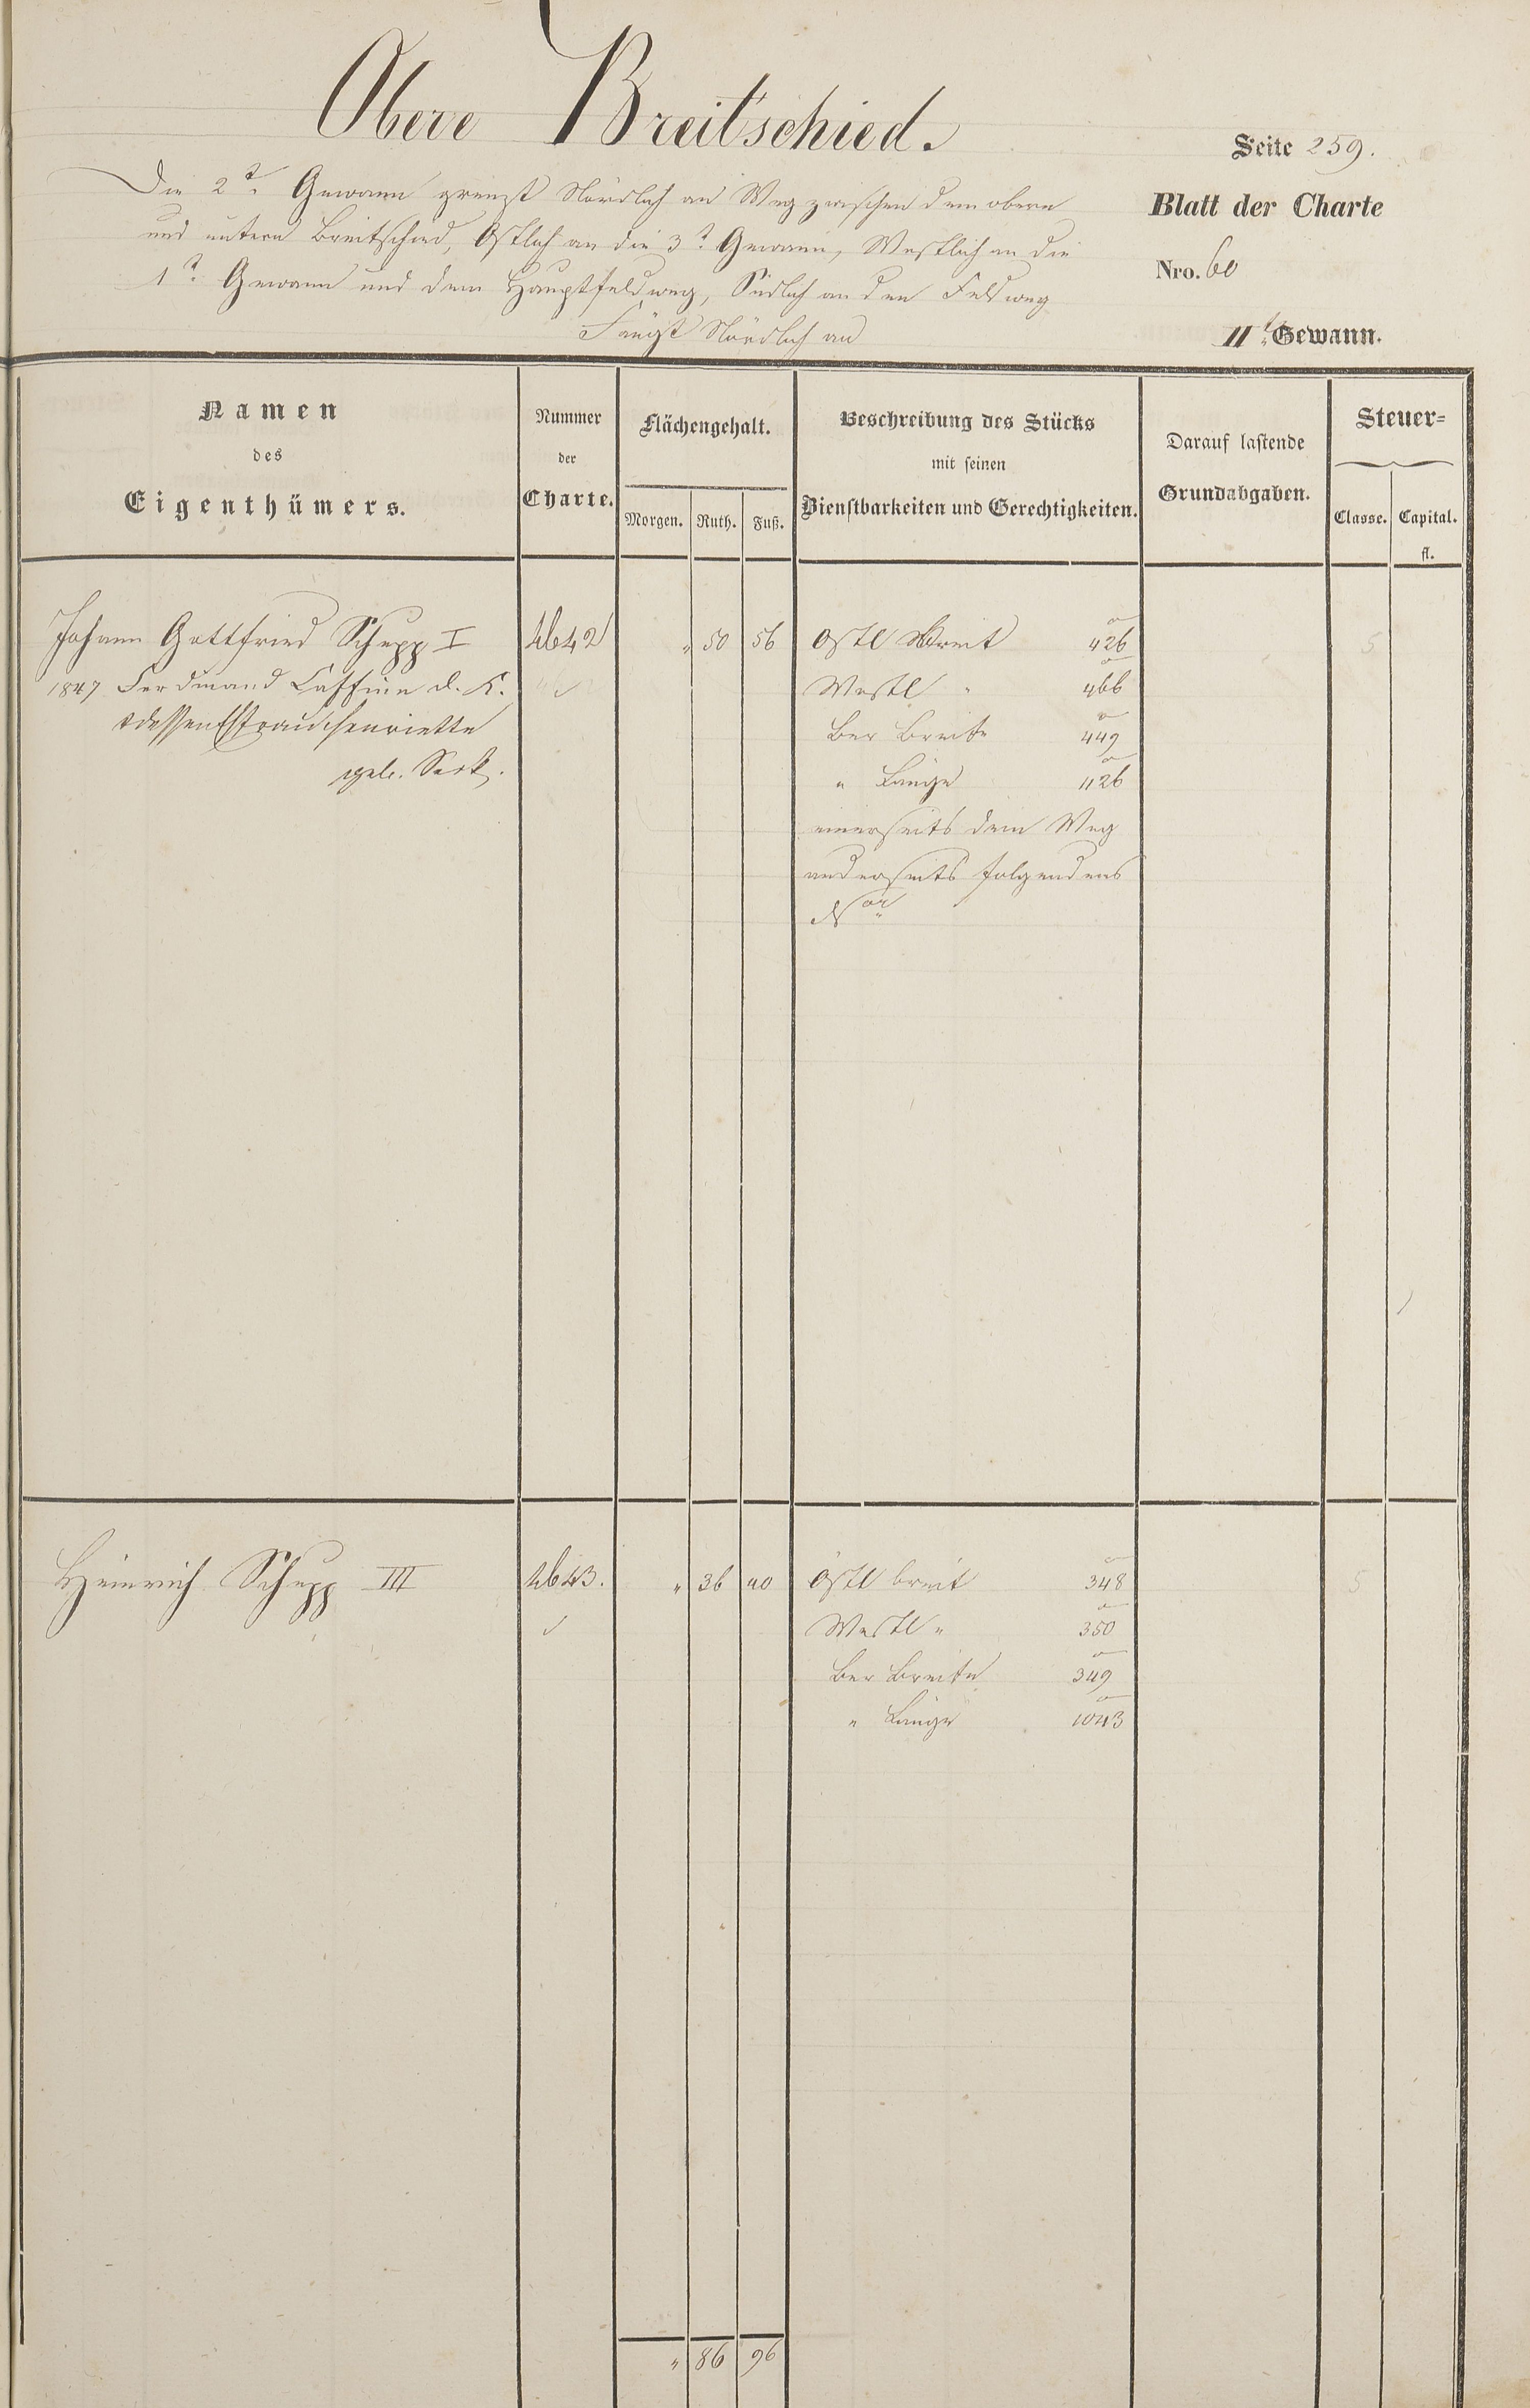 Obere Breitschied.
Seite 259.
Die 2t. Gewann grenzt Nördlich an Weg zwischen dem obern
Blatt der Charte
und untern Breitschied, Östlich an die 3t Gewann, Westlich an die
Nro. 60
1t Gewann und dem Hauptfeldweg, Südlich an den Feldweg
Fängt Nördlich an
IIt. Gewann.
Namen des Eigenthümers.
Nummer der Charte.
Flächengehalt.
Morgen. Ruth. Fuß.
Beschreibung des Stücks mit seinen Dienstbarkeiten und Gerechtigkeiten.
Darauf lastende Grundabgaben.
Steuer=
Classe. Capital. fl.
Johann Gottfried Schupp I 4642 " 50 56 Östl Breit 426 5
1847 Ferdinand d. K. Westl " 466
dessen Ehefrau Henriette Ber Breite 449
geb. " Länge 1126
einerseits dem Weg
anderseits folgendens
Nor
Heinrich Schupp III 4643. " 36 40 Östl breit 348 5
Westl " 350
Ber Breite 349
" Länge 1043
" 86 96